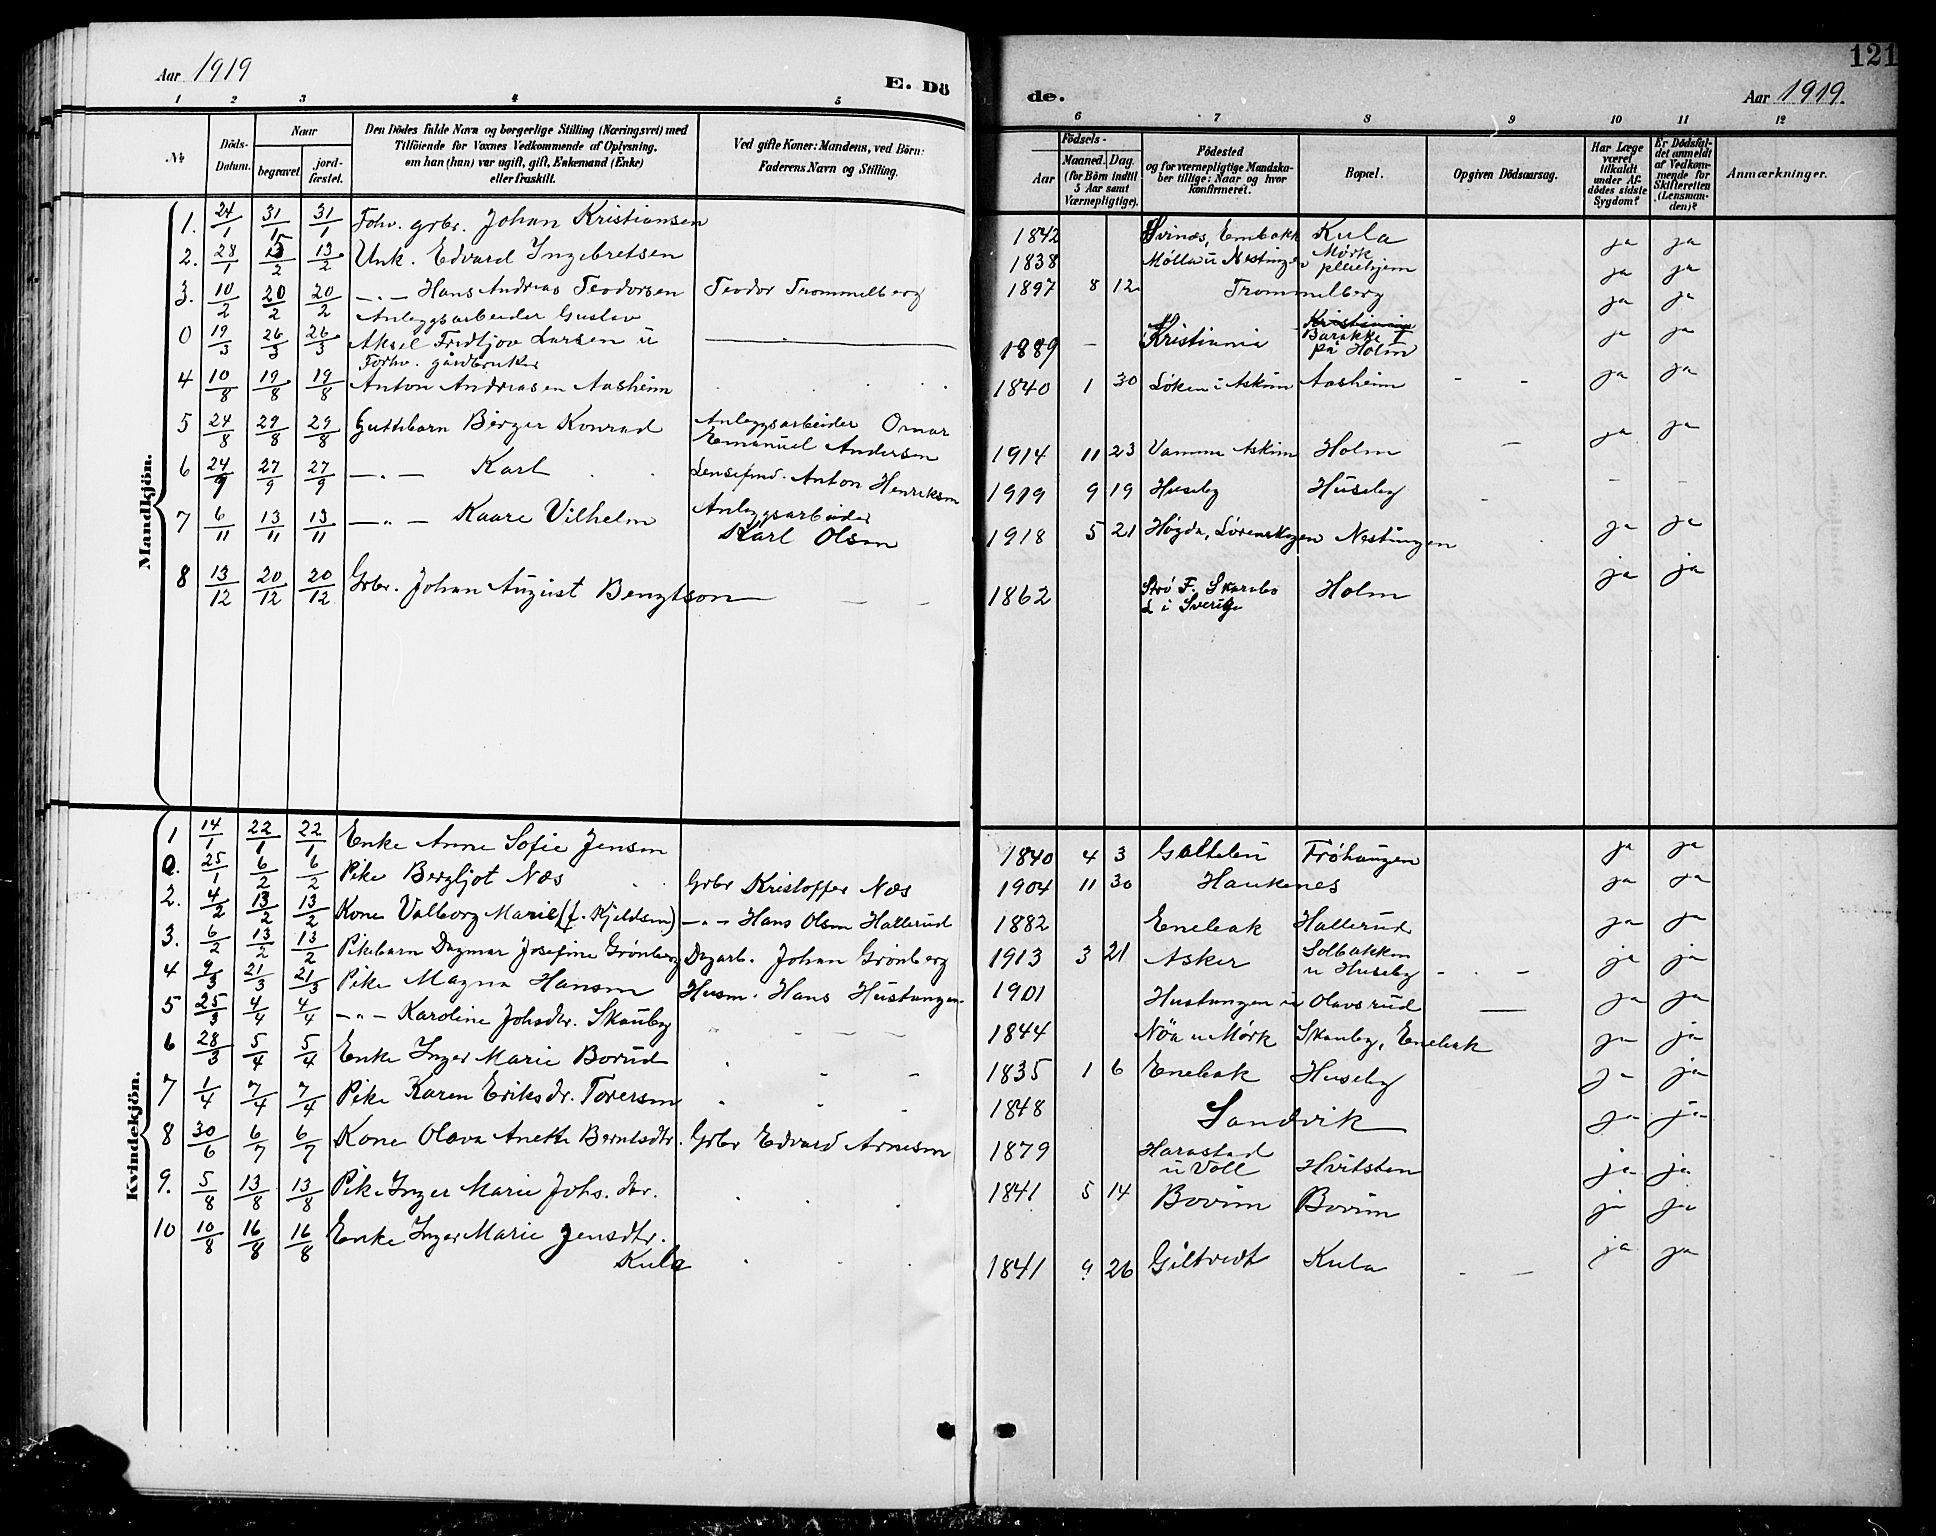 Aar 1919
E. Dö
1 2 3 4 5
№
Döds-Datum.
Naar
begravet
jord-fæstet.
Den Dödes fulde Navn og borgerlige Stilling (Næringsvei) med
Tilföiende for Voxnes Vedkommende af Oplysning,
om han (hun) var ugift, gift, Enkemand (Enke)
eller fraskilt.
Ved gifte Koner: Mandens, ved Börn:
Faderens Navn og Stilling.
Mandkjön.
1. 24/1 31/1 31/1 Fohv. grbr. Johan Kristiansen
2. 28/1 /2 13/2 Unk. Edvard Ingebretsen
3. 10/2 20/2 20/2 —„— Hans Andreas Teodorsen Teodor Trommelberg
Anleggsarbeider Gustav
0 19/3 26/3 26/3 Aksel Fridtjov Larsen u
Forhv. gårdbruker
4 10/8 19/8 19/8 Anton Andreasen Aasheim
5 24/8 29/8 29/8 Guttebarn Birger Konrad Anleggsarbeider Omar
Emanuel Andersen
6 24/9 27/9 27/9 —„— Karl Lensefmd. Anton Henriksen
7 6/11 13/11 13/11 —„— Kaare Vilhelm Anleggsarbeider
Karl Olsen
8 13/12 20/12 20/12 Grbr. Johan August Bengtson — —
Kvindekjön.
1 14/1 22/1 22/1 Enke Anne Sofie Jensen
0. 25/1 6/2 6/2 Pike Bergljot Næs Grbr Kristoffer Næs
2. 4/2 13/2 13/2 Kone Valborg Marie (f. Kjeldsen) —„— Hans Olsen Hallerud
3. 6/2 13/2 13/2 Pikebarn Dagmar Josefine Grønberg Dagarb. Johan Grönberg
4 9/3 21/3 21/3 Pike Magna Hansen Husm. Hans Hustangen
5 25/3 4/4 4/4 —„— Karoline Johsdtr. Skauby
6 28/3 5/4 5/4 Enke Inger Marie Borud
7 1/4 7/4 7/4 Pike Karen Eriksdr. Toversen
8 30/6 6/7 6/7 Kone Olava Anette Berntsdtr. Grbr Edvard Arnesen
9. 5/8 13/8 13/8 Pike Inger Marie Johs. dtr.
10 10/8 16/8 16/8 Enke Inger Marie Jensdtr.
Kula
121
de.
Aar 1919.
6 7 8 9 10 11 12
Födsels-
Aar
Maaned. Dag.
(for Börn indtil
5 Aar samt
Værnepligtige).
Födested
og for værnepligtige Mandska-
ber tillige: Naar og hvor
konfirmeret.
Bopæl.
Opgiven Dödsaarsag.
Har Læge
været
tilkaldt
under Af-
dödes sidste
Sygdom?
Er Dödsfal-
det anmeldt
af Vedkom-
mende for
Skifteretten
(Lensman-
den)?
Anmærkninger.
1842 Svinæs, Enebakk Kula ja ja
1838 Mølla u Nestingen Mørk
pleiehjem ja ja
1897 8 12 Trommelberg ja ja
1889 — Kristiania Kristiania
Barakke I
på Holm ja ja
1840 1 30 Løken i Askim Aasheim - - ja ja
1914 11 23 Vamma Askim Holm — ja ja
1919 9 19 Huseby Huseby - - -
1918 5 21 Høgda, Lørenskogen Nestingen ja ja
1862 Strö F. Skarabo
L i Sverige Holm ja ja
1840 4 3 Galteby Frøhaugen ja ja
1904 11 30 Haukenes ja ja
1882 Enebak Hallerud ja ja
1913 3 21 Asker Solbakken
u Huseby - . - ja ja
1901 Hustangen u Olavsrud — ja ja
1844 Nöa u Mørk Skauby, Enebak ja ja
1835 1 6 Enebak Huseby ja ja
1848 Sandvik ja ja
1879 Harastad
u Voll Hvitsten ja ja
1841 5 14 Bovim Bovim ja ja
1841 9 26 Giltvedt Kula - — ja ja